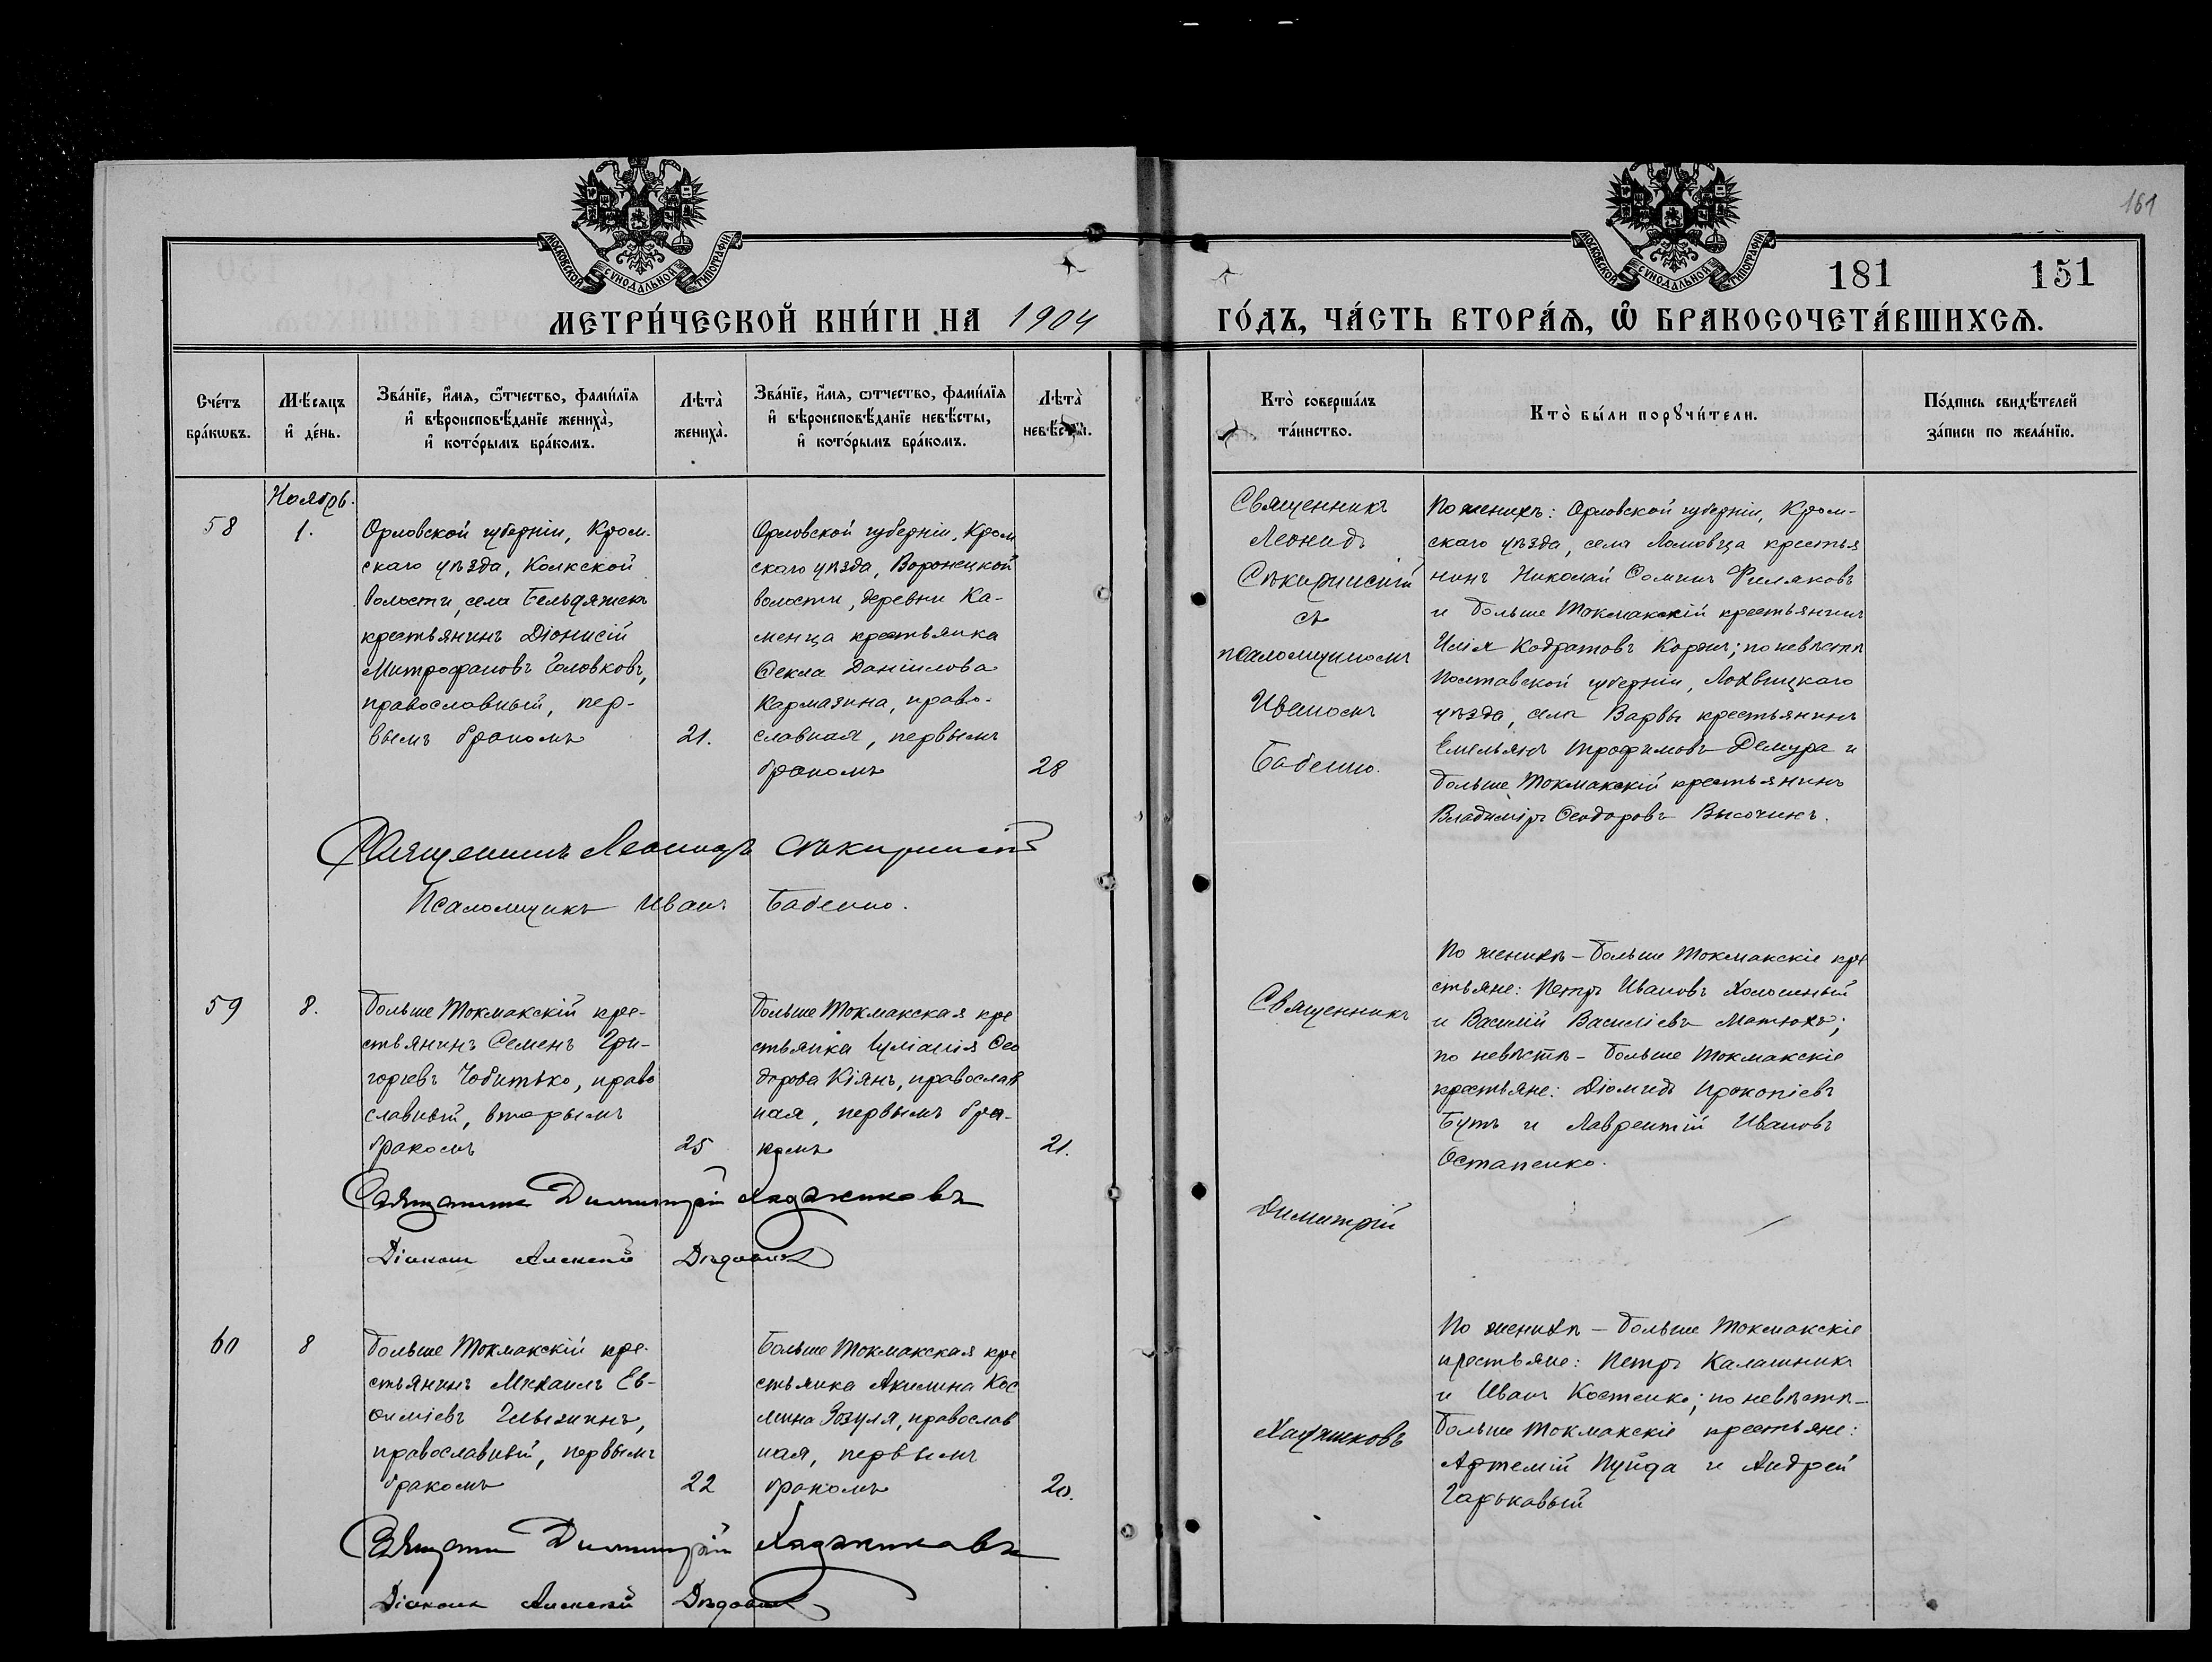 161
МОСКОВСКОЙ СУНОДАЛЬНОЙ ТИПОГРАФІИ
МОСКОВСКОЙ СУНОДАЛЬНОЙ ТИПОГРАФІИ
181 151
МЕТРИ́ЧЕСКОЙ КНИ́ГИ НА 1904
ГО́ДЪ, ЧА́СТЬ ВТОРА́Ѧ, Ѡ҆ БРАКОСОЧЕТА́ВШИХСѦ.
Сче́тъ
бра́кѡвъ.
Мѣ́сяцъ
и҆ де́нь.
Зва́нїе, и҆́мя, ѻ҆́тчество, фами́лїя
и҆ вѣроисповѣ́данїе жениха̀,
и҆ кото́рымъ бра́комъ.
Лѣта̀
жениха̀.
Зва́нїе, и҆́мя, ѻтчество, фами́лїя
и҆ вѣроисповѣ́данїе невѣ́сты,
и҆ кото́рымъ бра́комъ.
Лѣта̀
невѣ́сты.
Кто̀ соверша́лъ
та́инство.
Кто̀ бы́ли порꙋчи́тели.
По́дпись свидѣ́телей
за́писи по жела́нїю.
Ноябрь.
58
1.
Орловской губерніи, Кром-
скаго уѣзда, Колкской
волости, села Бельдяжекъ
крестьянинъ Діонисій
Митрофановъ Головковъ,
православный, пер-
вымъ бракомъ
21.
Орловской губерніи, Кром
скаго уѣзда, Воронецкой
волости, деревни Ка-
менца крестьянка
Ѳекла Даніилова
Кармазина, право-
славная, первымъ
бракомъ
28
Священникъ
Леонидъ
Сѣкиринскій
съ
псаломщикомъ
Иваномъ
Бабенко.
По женихѣ: Орловской губерніи, Кром-
скаго уѣзда, села Ломовца крестья
нинъ Николай Ѳоминъ Филяковъ
и Больше Токмакскій крестьянинъ
Илія Кодратовъ Коржъ; по невѣстѣ
Полтавской губерніи, Лохвицкаго
уѣзда, села Варвы крестьянинъ
Емельянъ Трофимовъ Демура и
Больше Токмакскій крестьянинъ
Владиміръ Ѳеодоровъ Высочинъ.
Священникъ Леонидъ Сѣкиринскій
Псаломщикъ Иванъ Бабенко.
59
8.
Больше Токмакскій кре-
стьянинъ Семенъ Гри-
горіевъ Чобитько, право
славный, вторымъ
бракомъ
25
Больше Токмакская кре
стьянка Іуліанія Ѳео
дорова Кіянъ, православ
ная, первымъ бра-
комъ
21.
Священникъ
Димитрій
Хаджиковъ
По женихѣ – Больше Токмакскіе кре
стьяне: Петръ Ивановъ Холошный
и Василій Василіевъ Матюхъ;
по невѣстѣ – Больше Токмакскіе
крестьяне: Діомидъ Прокопіевъ
Бутъ и Лаврентій Ивановъ
Остапенко.
Священникъ Димитрій Хаджиковъ
Діаконъ Алексій
60
8
Больше Токмакскій кре-
стьянинъ Михаилъ Ев-
ѳиміевъ
православный, первымъ
бракомъ
22
Больше Токмакская кре
стьянка Акилина Кос
мина Зозуля, православ
ная, первымъ
бракомъ
20.
По женихѣ – Больше Токмакскіе
крестьяне: Петръ Калашникъ
и Иванъ Костенко; по невѣстѣ –
Больше Токмакскіе крестьяне:
Артемій Пуйда и Андрей
Гарьковый
Священникъ Димитрій Хаджиковъ
Діаконъ Алексій